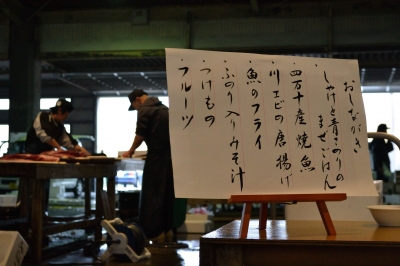 おしながき
しゃけと青のりの
まぜごはん
四万十産焼魚
川エビの唐揚げ
魚のフライ
ふのり入りみそ汁
つけもの
フルーツ